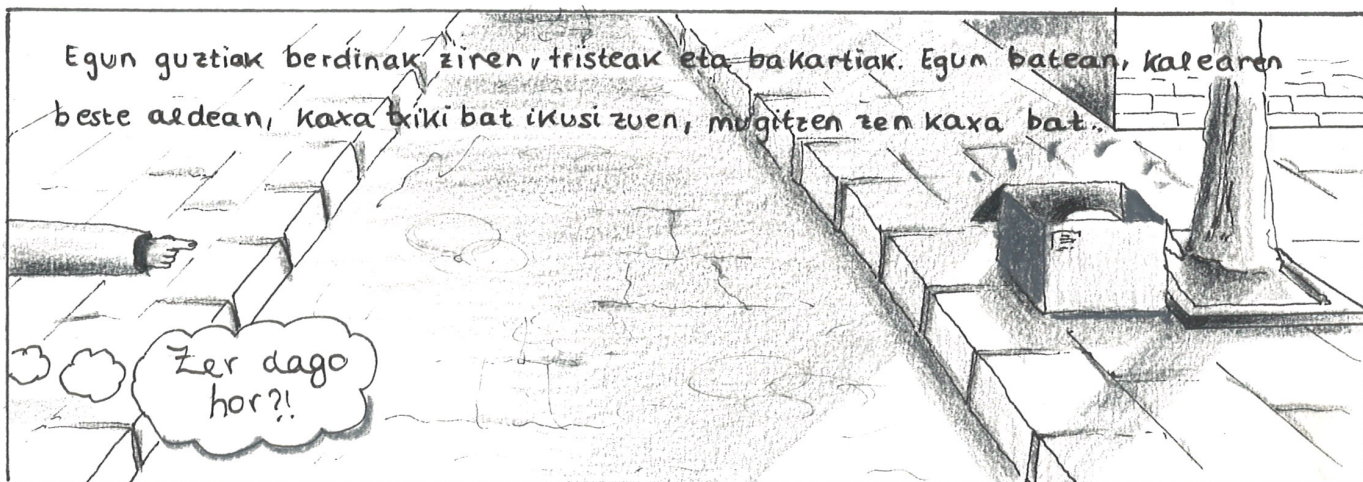 Egun guztiak berdinak ziren, tristeak eta bakartiak. Egun batean, kalearen
beste aldean, kaxa txiki bat ikusi zuen, mugitzen zen kaxa bat..
Zer dago
hor?!